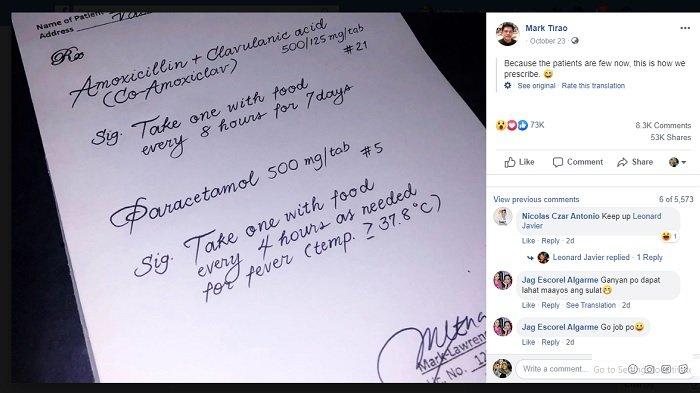 Name of Patient
Address
Rx
Amoxicillin + Clavulanic acid
(Co-Amoxiclav) 500/125 mg/tab
#21
Sig. Take one with food
every 8 hours for 7 days
Paracetamol 500 mg/tab #5
Sig. Take one with food
every 4 hours as needed
for fever (temp. ≥ 37.8°C)
Mark Lawrenc
No.
Mark Tirao
October 23
Because the patients are few now, this is how we
prescribe. 😄
See original · Rate this translation
73K
8.3K Comments
53K Shares
Like Comment Share
View previous comments 6 of 5,573
Nicolas Czar Antonio Keep up Leonard
Javier
1
Like · Reply · 2d
Leonard Javier replied · 1 Reply
Jag Escorel Algarme Ganyan po dapat
lahat maayos ang sulat😁
Like · Reply · See Translation · 2d
Jag Escorel Algarme Go job po😀
Like · Reply · 2d
Write a comment...
Go to